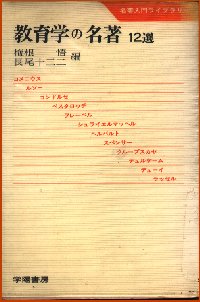 名著入門ライブラリー
教育学の名著 12選
梅根 悟
長尾十三二 編
コメニウス
ルソー
コンドルセ
ペスタロッチ
フレーベル
シュライエルマッヘル
ヘルバルト
スペンサー
クループスカヤ
デュルケーム
デューイ
ナトルプ
学陽書房